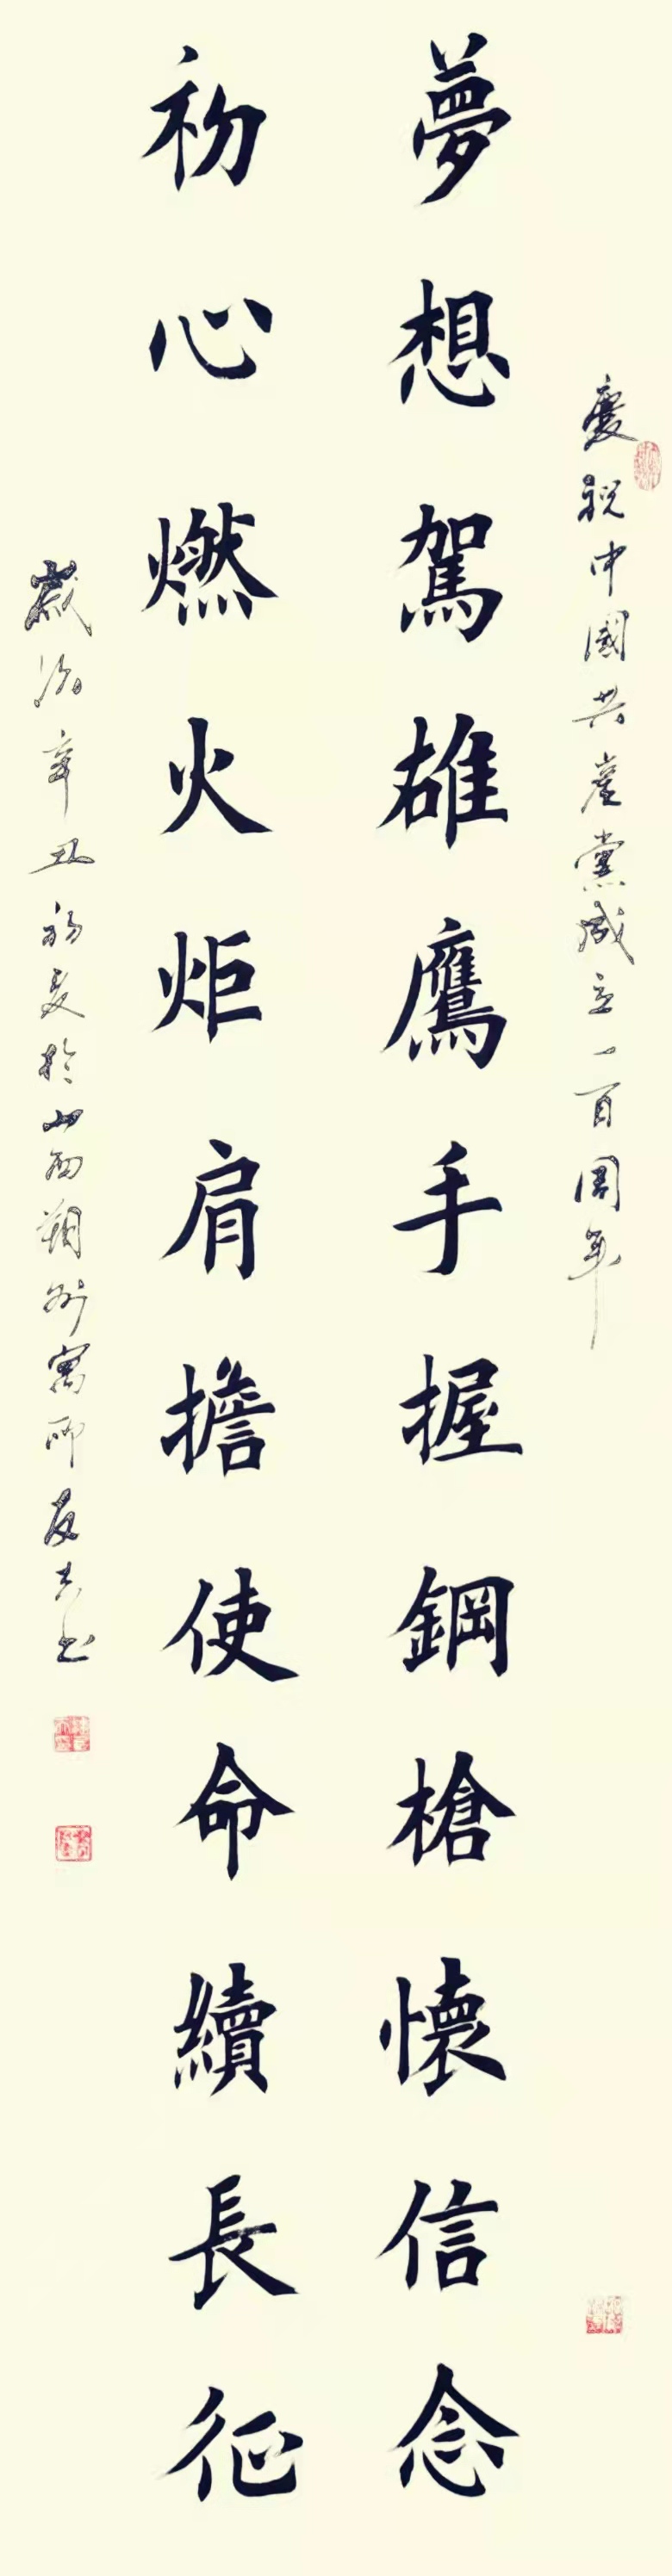 慶祝中國共產黨成立一百周年
夢想駕雄鷹手握鋼槍懷信念
初心燃火炬肩擔使命續長征
歲次辛丑初夏於山西朔州寓所友其书